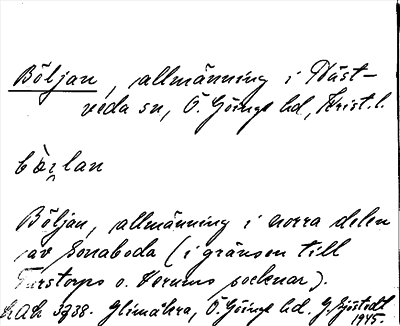 Böljan, allmänning i Näst-
veda sn, Ö. Göinge hd, Krist. l.
Böljan, allmänning i norra delen
av Sonaboda (i gränsen till
Farstorps o. Verums socknar).
3938. Glimåkra, Ö. Göinge hd. G. Sjöstedt
1945.